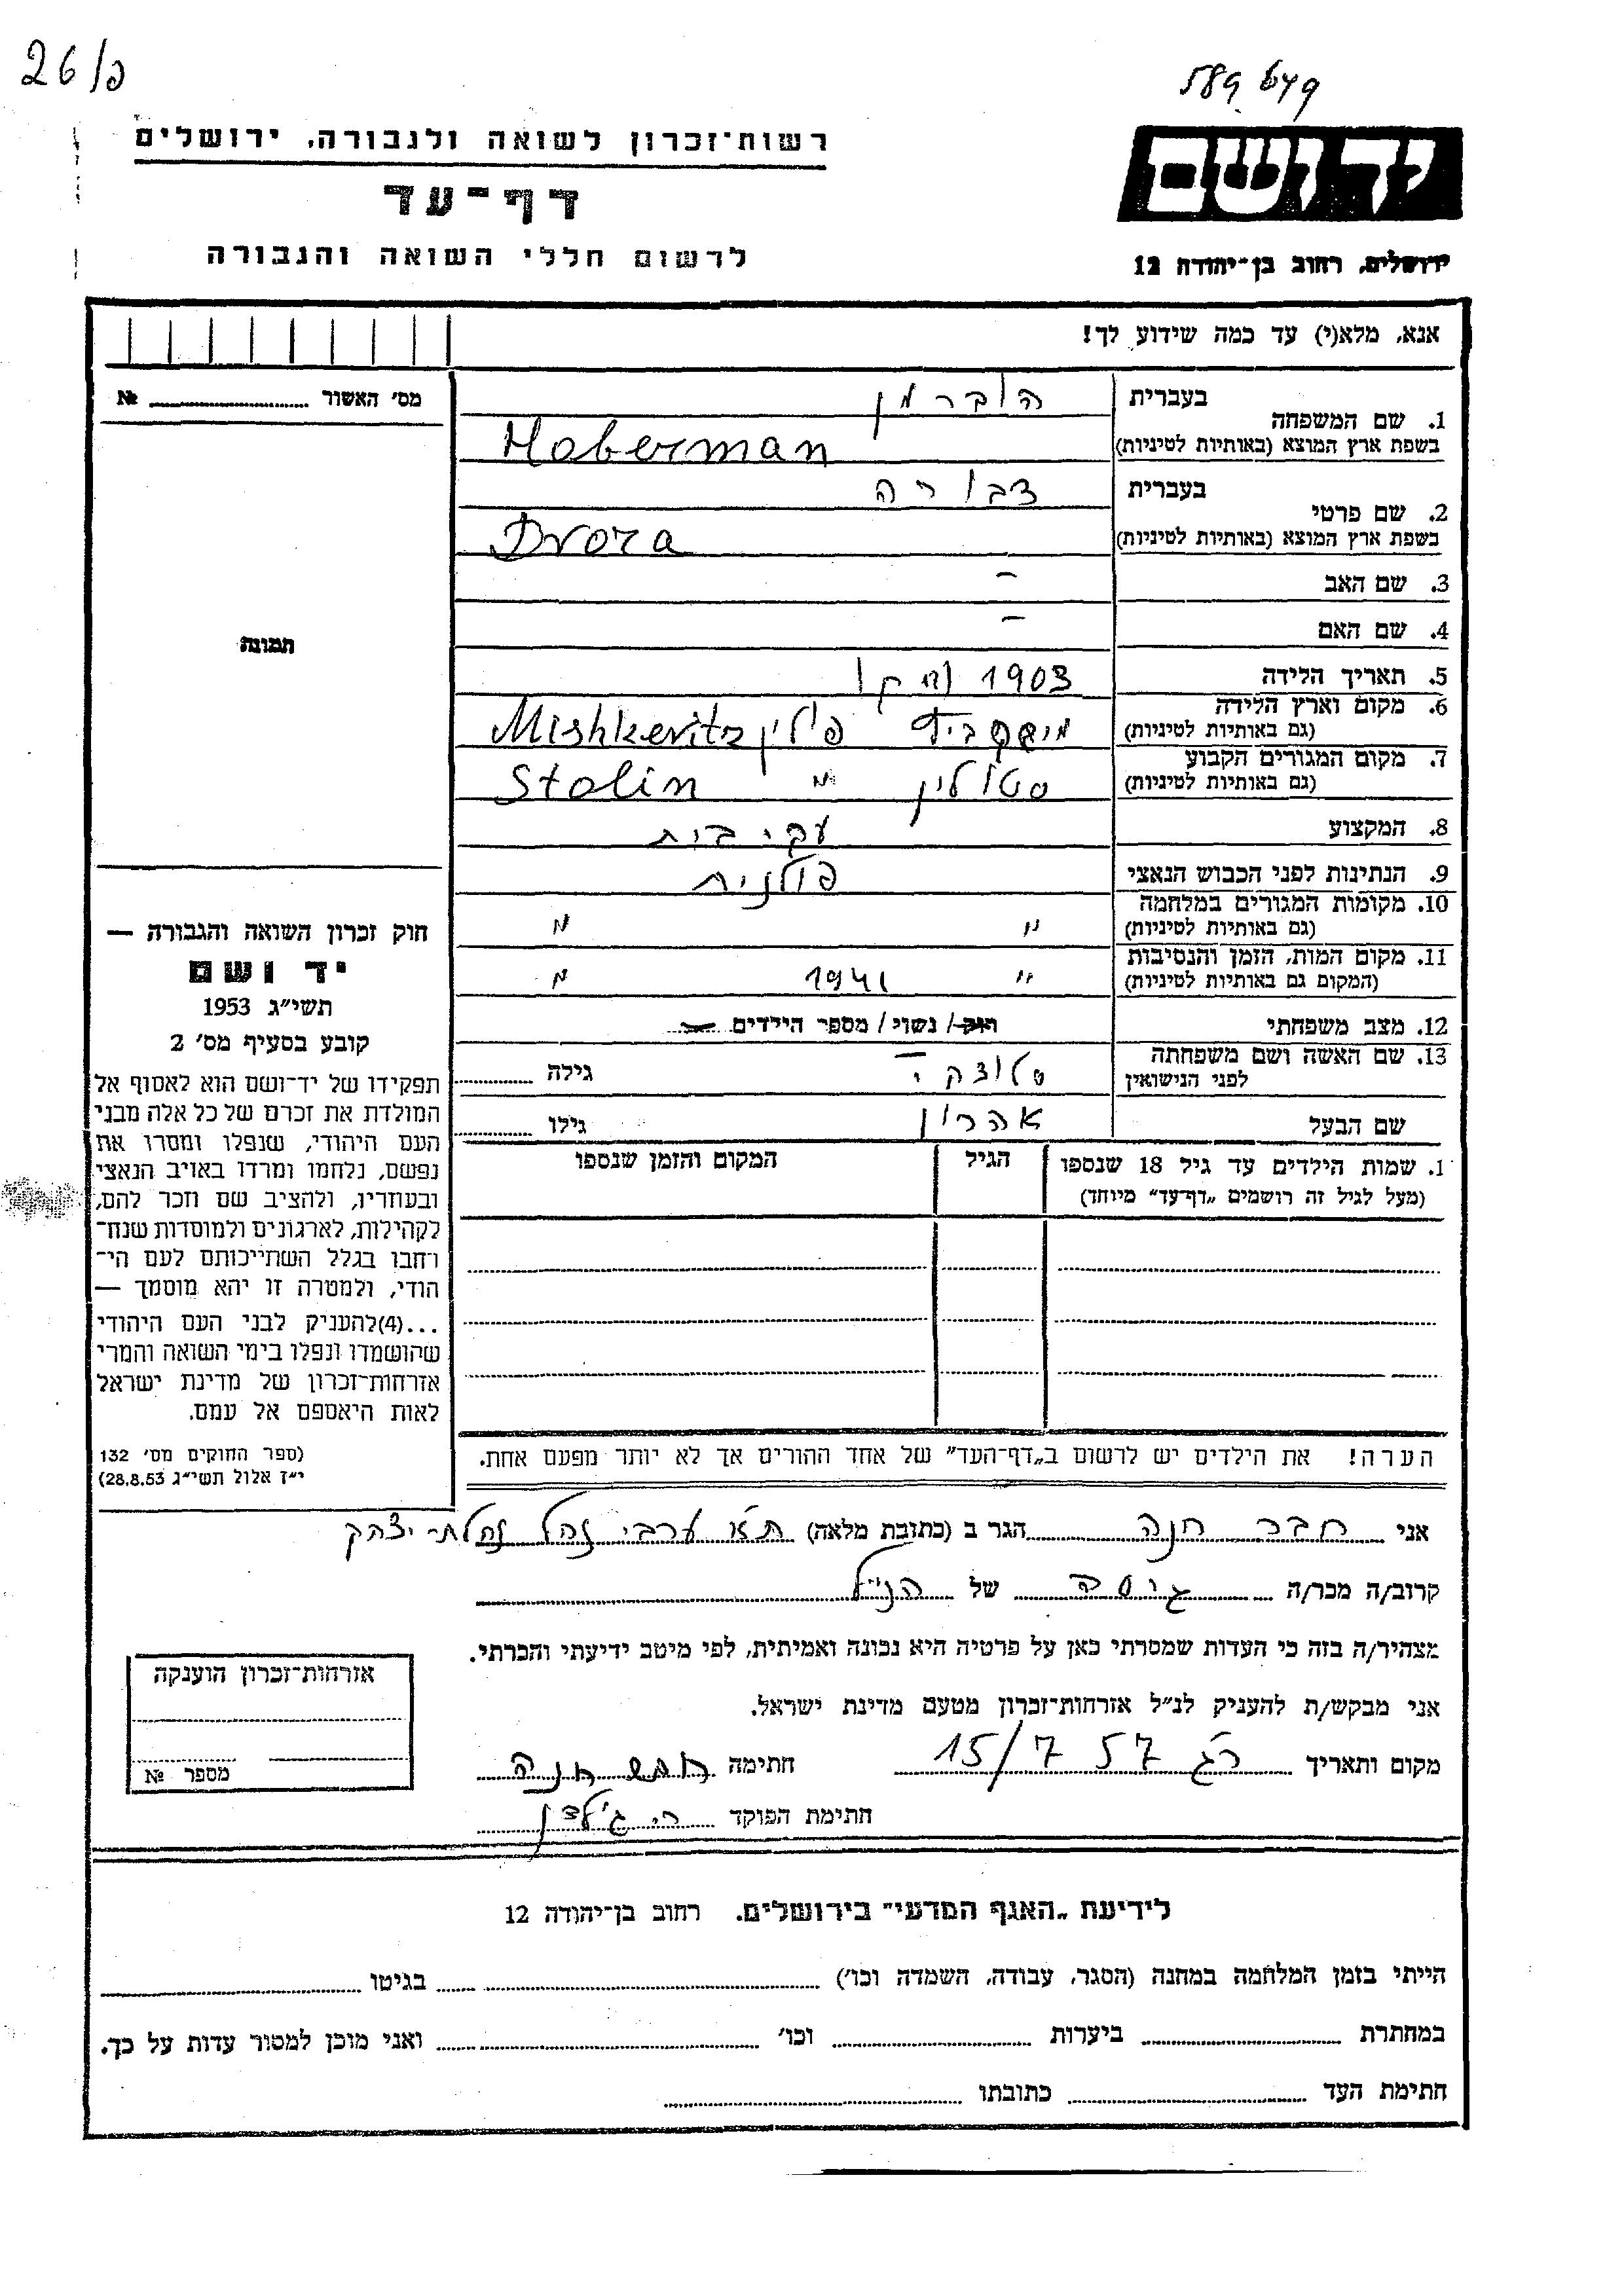 26/פ
589 649
רשות־זכרון לשואה ולגבורה, ירושלים
ידושם
דף-עד
לרשום חללי השואה והגבורה
ירושלים, רחוב בן־יהודה 12
אנא, מלא(י) עד כמה שידוע לך!
מס׳ האשור № 
1. שם המשפחה בעברית הוברמן
בשפת ארץ המוצא (באותיות לטיניות) Hoberman
2. שם פרטי בעברית דבורה
בשפת ארץ המוצא (באותיות לטיניות) Dvora
3. שם האב –
4. שם האם –
תמונה
5. תאריך הלידה 1903
6. מקום וארץ הלידה (גם באותיות לטיניות) פולין Mishkevitz
7. מקום המגורים הקבוע (גם באותיות לטיניות) סטולין " Stolin
8. המקצוע עק׳ בית
9. הנתינות לפני הכבוש הנאצי פולנית
10. מקומות המגורים במלחמה (גם באותיות לטיניות) " "
11. מקום המות, הזמן והנסיבות (המקום גם באותיות לטיניות) " 1941 "
12. מצב משפחתי רוק/ נשוי/ מספר הילדים
13. שם האשה ושם משפחתה לפני הנישואין סלוצקי גילה
שם הבעל אהרון גילו
1. שמות הילדים עד גיל 18 שנספו הגיל המקום והזמן שנספו
(מעל לגיל זה רושמים „דף־עד" מיוחד)
חוק זכרון השואה והגבורה —
יד ושם
תשי״ג 1953
קובע בסעיף מס׳ 2
תפקידו של יד־ושם הוא לאסוף אל
המולדת את זכרם של כל אלה מבני
העם היהודי, שנפלו ומסרו את
נפשם, נלחמו ומרדו באויב הנאצי
ובעוזריו, ולהציב שם וזכר להם,
לקהילות, לארגונים ולמוסדות שנח־
רחבו בגלל השתייכותם לעם הי־
הודי, ולמטרה זו יהא מוסמך —
...(4)להעניק לבני העם היהודי
שהושמדו ונפלו בימי השואה והמרי
אזרחות־זכרון של מדינת ישראל
לאות היאספם אל עמם.
(ספר החוקים מס׳ 132
י״ז אלול תשי״ג 28.8.53)
הערה! את הילדים יש לרשום ב„דף־העד" של אחד ההורים אך לא יותר מפעם אחת.
אני חבר חנה הגר ב (כתובת מלאה) ת״א ערבי נחל נחלת-יצחק
קרוב/ה מכר/ה גיסה של הנ״ל
מצהיר/ה בזה כי העדות שמסרתי כאן על פרטיה היא נכונה ואמיתית, לפי מיטב ידיעתי והכרתי.
אני מבקש/ת להעניק לנ״ל אזרחות־זכרון מטעם מדינת ישראל.
מקום ותאריך רג 15/7 57 חתימה חנה
חתימת הפוקד
אזרחות־זכרון הוענקה
מספר №
לידיעת „האגף המדעי" בירושלים. רחוב בן־יהודה 12
הייתי בזמן המלחמה במחנה (הסגר, עבודה, השמדה וכו׳) בגיטו
במחתרת ביערות וכו׳ ואני מוכן למסור עדות על כך.
חתימת העד כתובתו